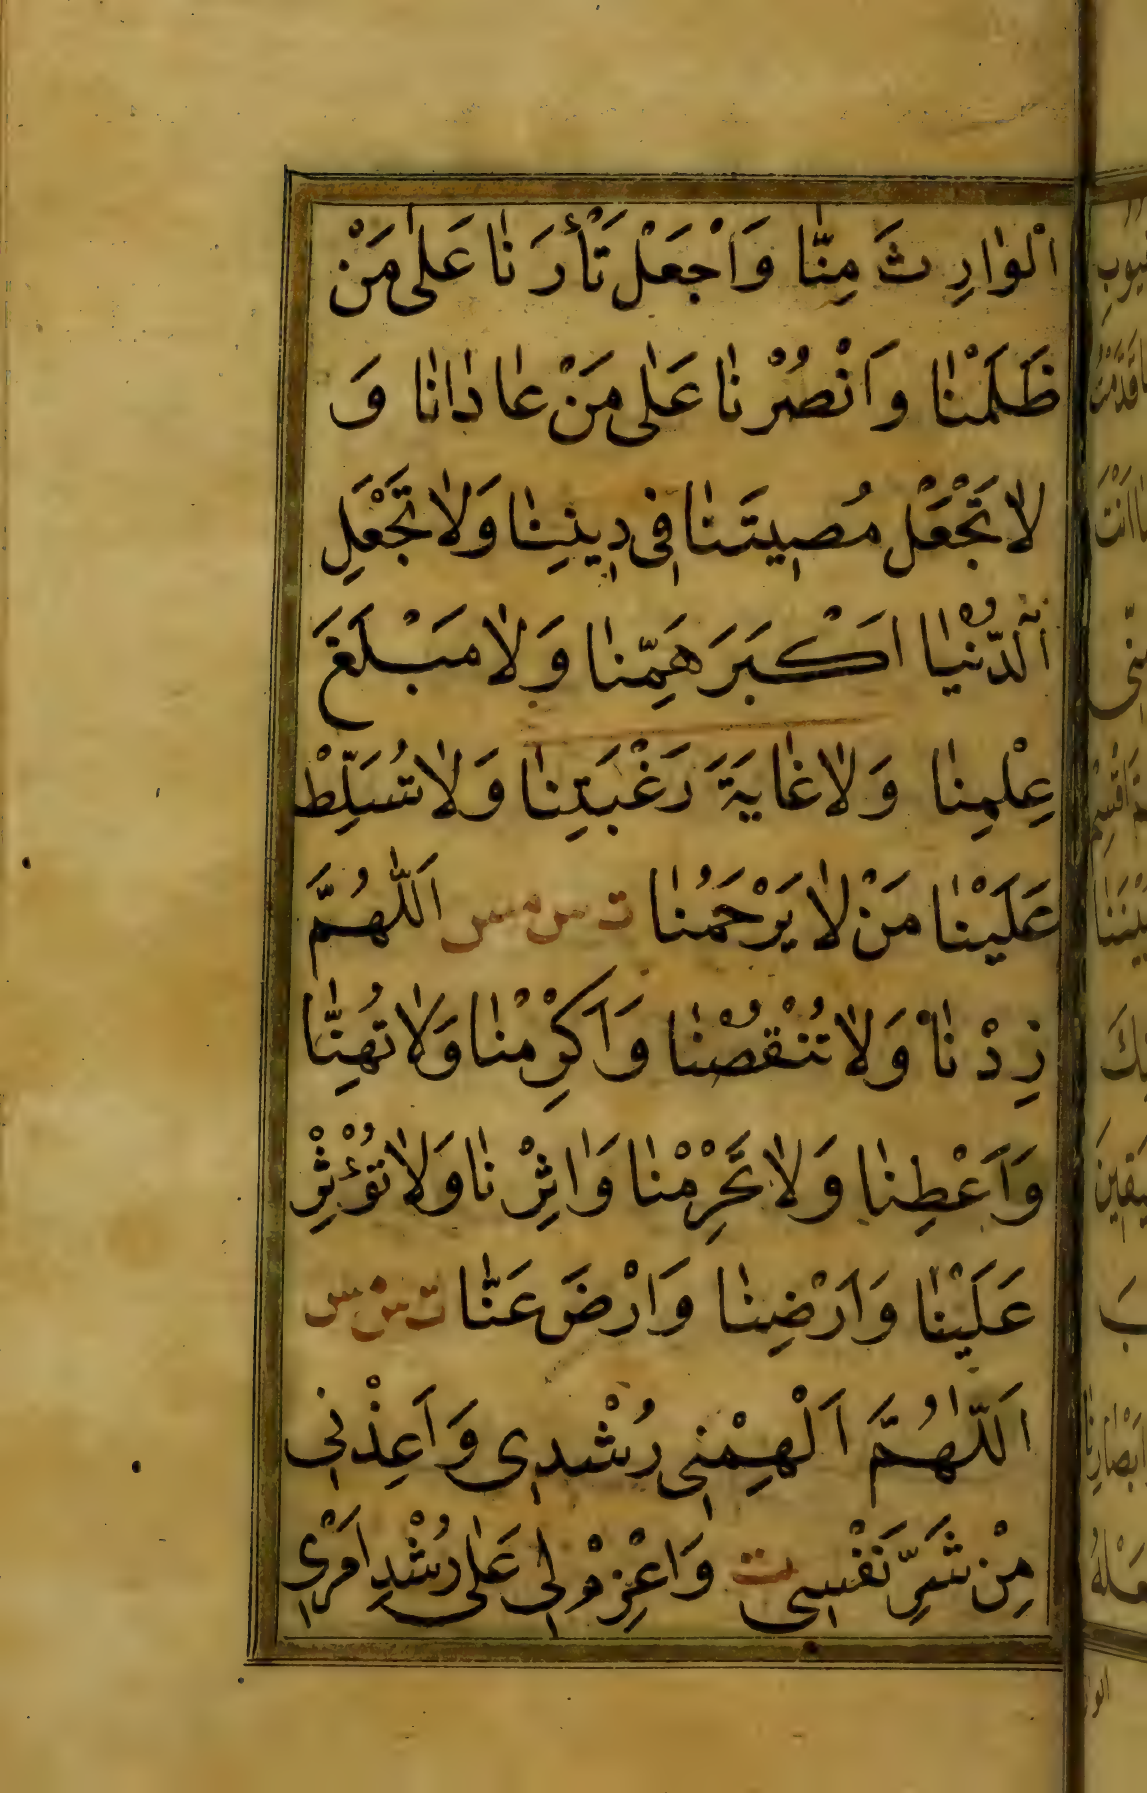 الْوٰارِثَ مِنّٰا وَاَجْعَلْ ثَأْرَنٰا عَلٰى مَنْ
ظَلَمْنٰا وَاَنْصُرْنٰا عَلٰى مَنْ عٰادٰانٰا وَ
لاٰ تَجْعَلْ مُصِيبَتَنٰا فِى دِينِنٰا وَلاٰ تَجْعَلِ
الدُّنْيٰا اَكْبَرَ هَمِّنٰا وَلاٰ مَبْلَغَ
عِلْمِنٰا وَلاٰ غٰايَةَ رَغْبَتِنٰا وَلاٰ تُسَلِّطْ
عَلَيْنٰا مَنْ لاٰ يَرْحَمُنٰا ت س مس اَللّٰهُمَّ
زِدْنٰا وَلاٰ تُنْقُصْنٰا وَاَكْرِمْنٰا وَلاٰ تُهِنّٰا
وَاَعْطِنٰا وَلاٰ تَحْرِمْنٰا وَاٰثِرْنٰا وَلاٰ تُؤْثِرْ
عَلَيْنٰا وَاَرْضِنٰا وَارْضَ عَنّٰا ت س مس
اَللّٰهُمَّ اَلْهِمْنِى رُشْدِى وَاَعِذْنِى
مِنْ شَرِّ نَفْسِى ت وَاعْزِمْ لِى عَلٰى رُشْدِ اَمْرِى